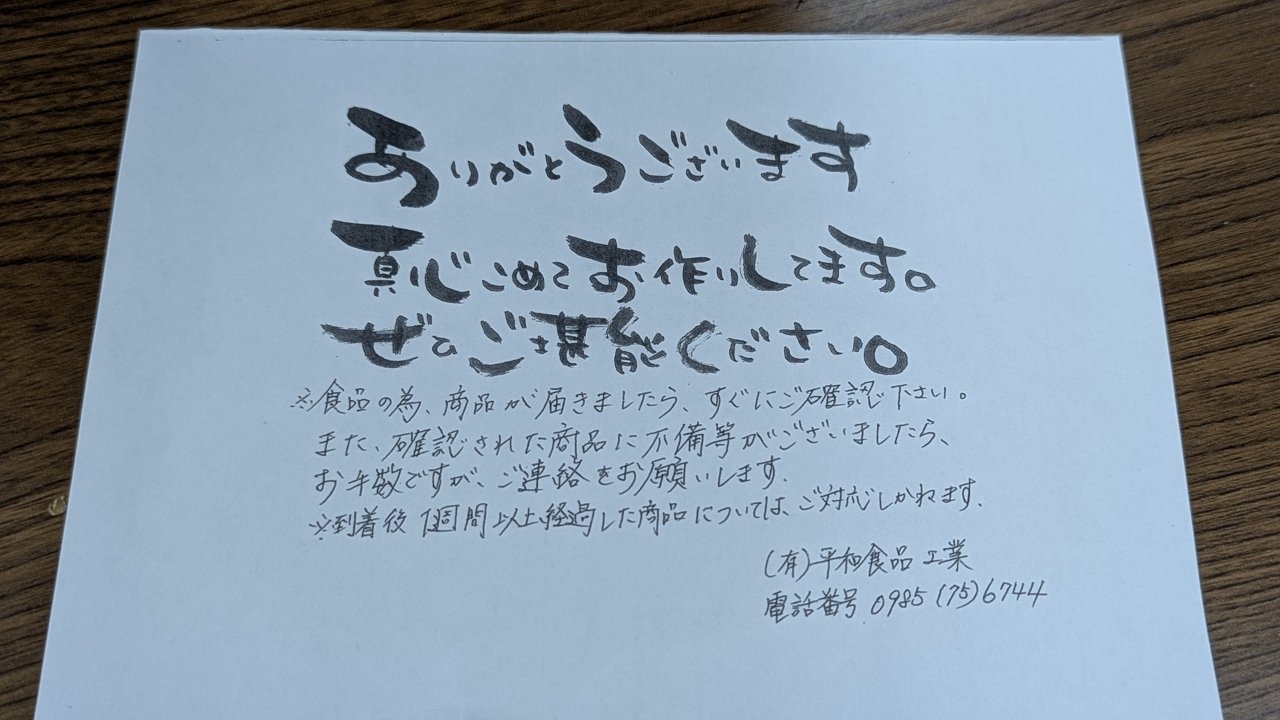 ありがとうございます
真心こめてお作りしてます。
ぜひご堪能ください。
※食品の為、商品が届きましたら、すぐにご確認下さい。
また、確認された商品に不備等がございましたら、
お手数ですが、ご連絡をお願いします.
※到着後1週間以上経過した商品については、ご対応しかねます.
(有)平和食品工業
電話番号 0985(75)6744